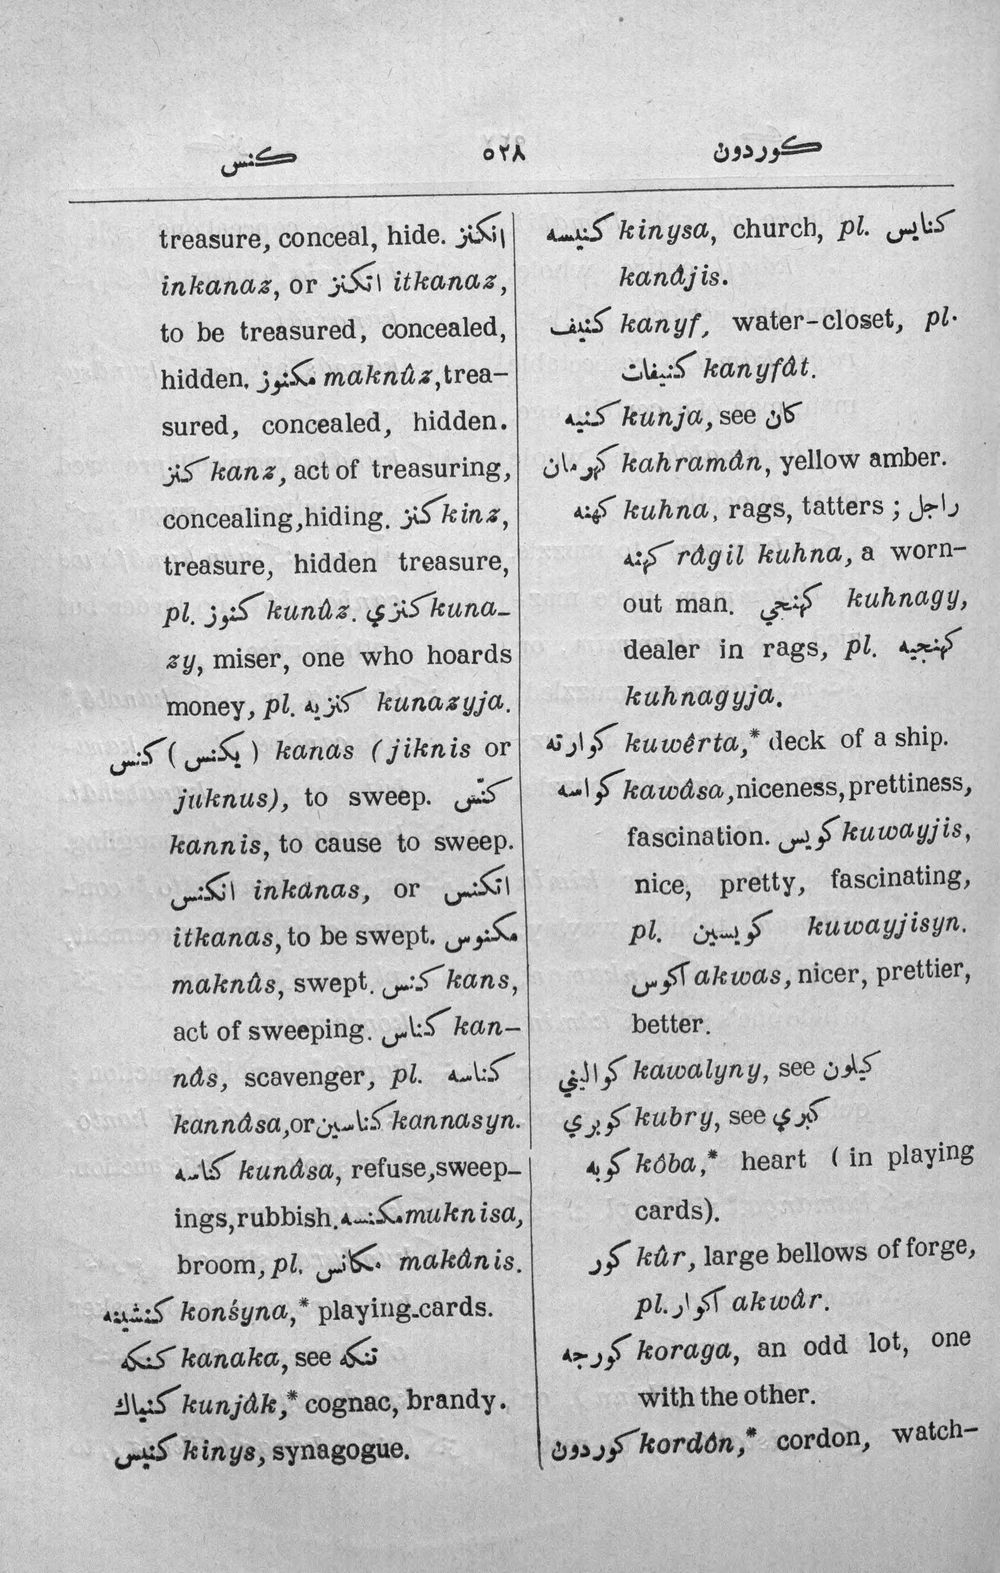 كنس ٥٢٨ كوردون
treasure, conceal, hide. انكنز
inkanaz, or اتكنز itkanaz,
to be treasured, concealed,
hidden. مكنوز maknûz, trea-
sured, concealed, hidden.
كنز kanz, act of treasuring,
concealing, hiding. كنز kinz,
treasure, hidden treasure,
pl. كنوز kunûz. كنزي kuna-
zy, miser, one who hoards
money, pl. كنزيه kunazyja.
كنس (يكنس) kanas (jiknis or
juknus), to sweep. كنّس
kannis, to cause to sweep.
انكنس inkanas, or اتكنس
itkanas, to be swept. مكنوس
maknûs, swept. كنس kans,
act of sweeping. كناس kan-
nâs, scavenger, pl. كناسه
kannâsa, or كناسين kannasyn.
كناسه kunâsa, refuse, sweep-
ings, rubbish. مكنسه muknisa,
broom, pl. مكانس makânis.
كنشينه konśyna,* playing-cards.
كنكه kanaka, see تنكه
كنياك kunjâk,* cognac, brandy.
كنيس kinys, synagogue.
كنيسه kinysa, church, pl. كنايس
kanâjis.
كنيف kanyf, water-closet, pl.
كنيفات kanyfât.
كنيه kunja, see كان
كهرمان kahramân, yellow amber.
كهنه kuhna, rags, tatters ; راجل
كهنه râgil kuhna, a worn-
out man. كهنجي kuhnagy,
dealer in rags, pl. كهنجيه
kuhnagyja.
كوارته kuwêrta,* deck of a ship.
كواسه kawâsa, niceness, prettiness,
fascination. كويس kuwayjis,
nice, pretty, fascinating,
pl. كويسين kuwayjisyn.
اكوس akwas, nicer, prettier,
better.
كواليني kawalyny, see كيلون
كوبري kubry, see كبري
كوبه kôba,* heart (in playing
cards).
كور kûr, large bellows of forge,
pl. اكوار akwâr.
كورجه koraga, an odd lot, one
with the other.
كوردون kordôn,* cordon, watch-